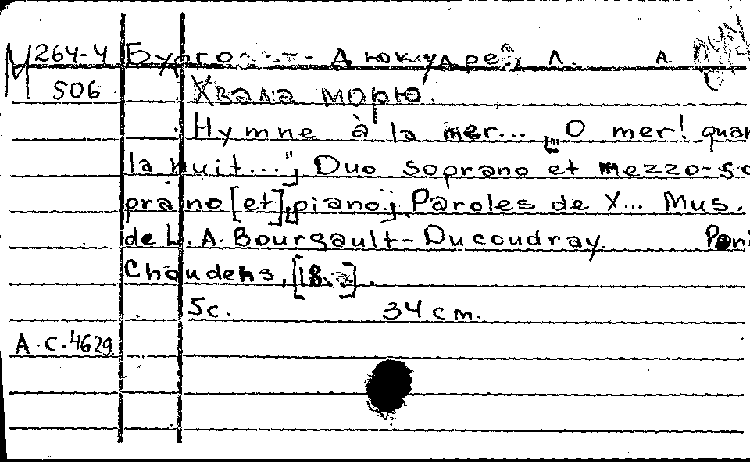 М 264-4 Бурго-Дюкудрэ, Л. А.
506 Хвала морю.
Hymne à la mer... „O mer! quan
la nuit..." Duo soprano et mezzo-so
prano [et] piano. Paroles de X... Mus.
de L. A. Bourgault-Ducoudray.
Choudens, [18..].
5 c. 34 cm.
А.С.4629